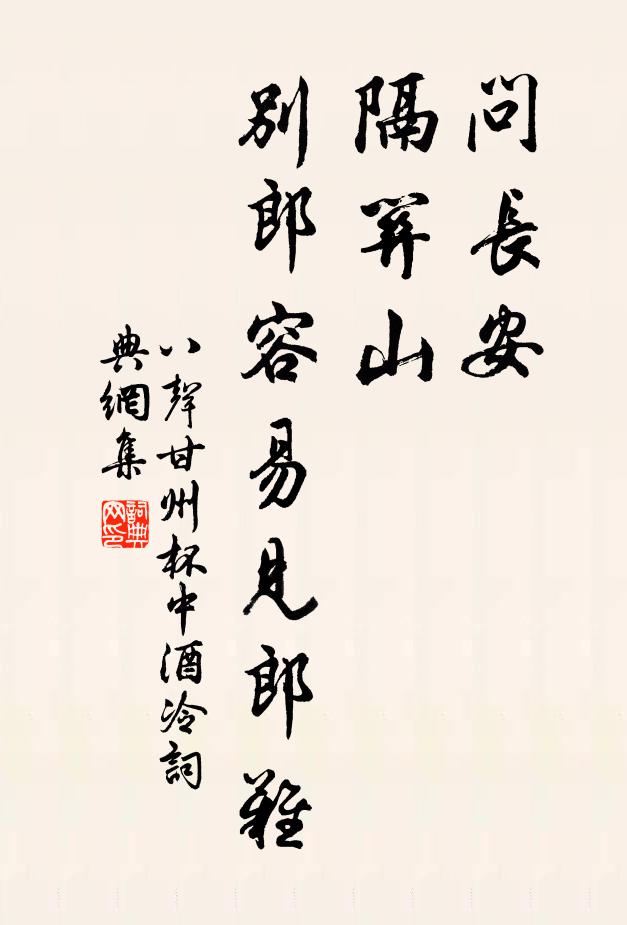 問長安
隔關山
別郎容易見郎難
八聲甘州杯中酒冷詞
典網集
詞典
网印